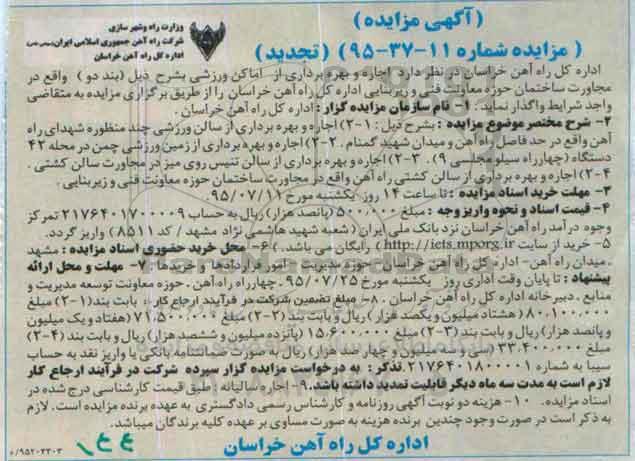 (آگهی مزایده)
(مزایده شماره 11-37-95) (تجدید)
وزارت راه و شهر سازی
شرکت راه آهن جمهوری اسلامی ایران(سهامی خاص)
اداره کل راه آهن خراسان
اداره کل راه آهن خراسان در نظر دارد اجاره و بهره برداری از اماکن ورزشی بشرح ذیل (بند دو ) واقع در
مجاورت ساختمان حوزه معاونت فنی و زیربنایی اداره کل راه آهن خراسان را از طریق برگزاری مزایده به متقاضی
واجد شرایط واگذار نماید . 1- نام سازمان مزایده گزار : اداره کل راه آهن خراسان .
2- شرح مختصر موضوع مزایده : بشرح ذیل : 1-2) اجاره و بهره برداری از سالن ورزشی چند منظوره شهدای راه
آهن واقع در حد فاصل راه آهن و میدان شهید گمنام . 2-2) اجاره و بهره برداری از زمین ورزشی چمن در محله 42
دستگاه (چهارراه سیلو مجلسی 9) . 3-2) اجاره و بهره برداری از سالن تنیس روی میز در مجاورت سالن کشتی .
4-2) اجاره و بهره برداری از سالن کشتی راه آهن واقع در مجاورت ساختمان حوزه معاونت فنی و زیربنایی .
3- مهلت خرید اسناد مزایده : تا ساعت 14 روز یکشنبه مورخ 95/07/11 .
4- قیمت اسناد و نحوه واریز وجه : مبلغ 500.000 (پانصد هزار) ریال به حساب 2176401700009 تمرکز
وجوه درآمد راه آهن خراسان نزد بانک ملی ایران ( شعبه شهید هاشمی نژاد مشهد / کد 8511) واریز گردد.
5- خرید از سایت http://iets.mporg.ir) رایگان می باشد . ) 6- محل خرید حضوری اسناد مزایده : مشهد
. میدان راه آهن- اداره کل راه آهن خراسان- حوزه مدیریت - امور قراردادها و خریدها 7- مهلت و محل ارائه
پیشنهاد : تا پایان وقت اداری روز یکشنبه مورخ 95/07/25 . چهارراه راه آهن . حوزه معاونت توسعه مدیریت و
منابع . دبیرخانه اداره کل راه آهن خراسان . 8- مبلغ تضمین شرکت در فرآیند ارجاع کار : بابت بند(1-2) مبلغ
80.100.000 (هشتاد میلیون و یکصد هزار) ریال و بابت بند (2-2) مبلغ 71.500.000 (هفتاد و یک میلیون
و پانصد هزار) ریال و بابت بند (3-2) مبلغ 15.600.000 (پانزده میلیون و ششصد هزار) ریال و بابت بند (4-2)
مبلغ 33.400.000 (سی و سه میلیون و چهار صد هزار) ریال به صورت ضمانتنامه بانکی یا واریز نقد به حساب
سیبا به شماره 2176401800001 . تذکر : به درخواست مزایده گزار سپرده شرکت در فرآیند ارجاع کار
لازم است به مدت سه ماه دیگر قابلیت تمدید داشته باشد. 9- اجاره سالیانه : طبق قیمت کارشناسی درج شده در
اسناد مزایده . 10- هزینه دو نوبت آگهی روزنامه و کارشناس رسمی دادگستری به عهده برنده مزایده است . لازم
به ذکر است در صورت وجود چندین برنده هزینه به صورت مساوی بر عهده کلیه برندگان میباشد.
اداره کل راه آهن خراسان
/95202303